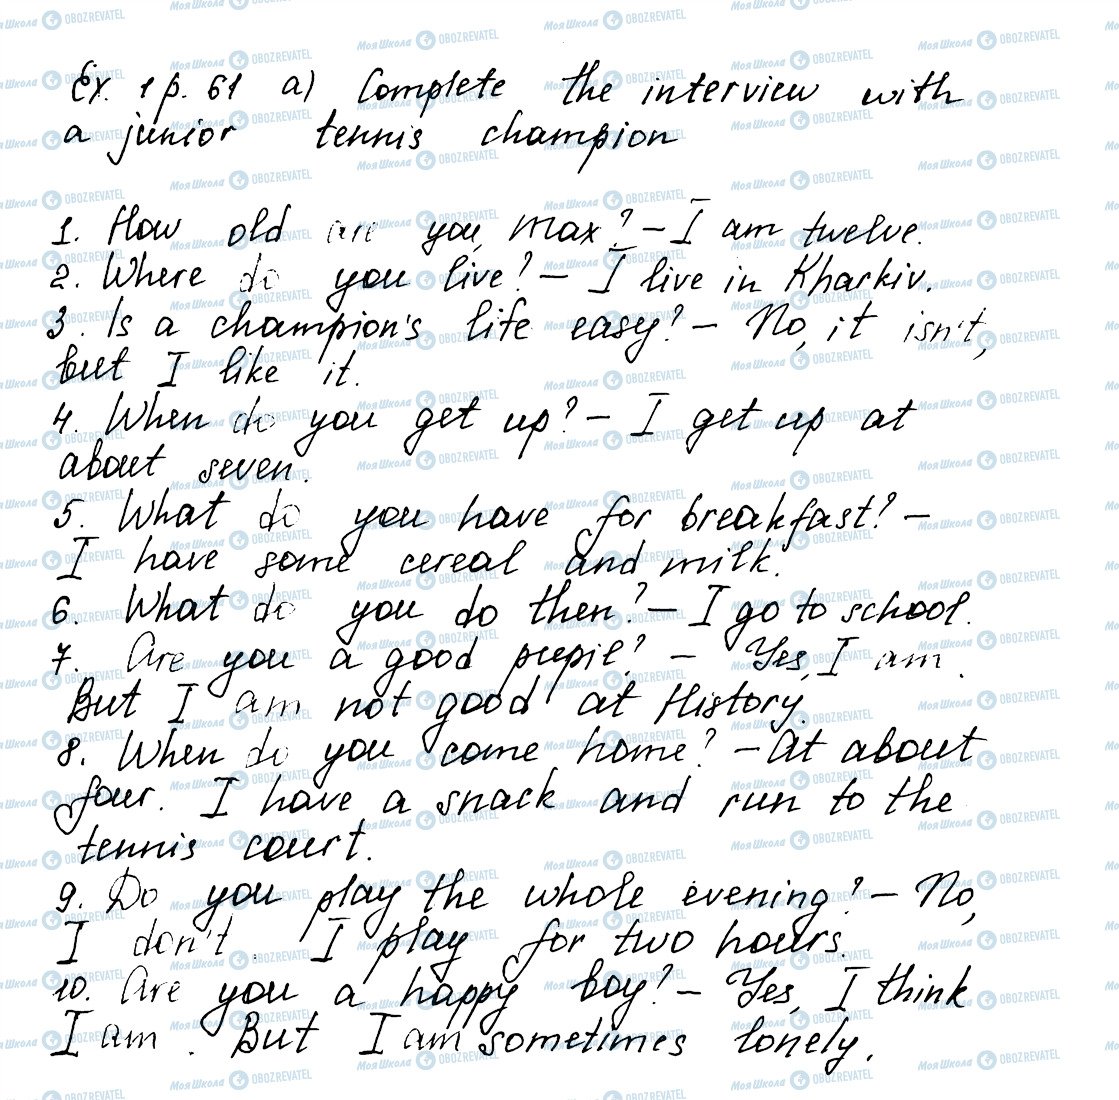 Ex. 1 p. 61 a) Complete the interview with
a junior tennis champion
1. How old are you, Max? – I am twelve.
2. Where do you live? – I live in Kharkiv.
3. Is a champion's life easy? – No, it isn't,
but I like it.
4. When do you get up? – I get up at
about seven.
5. What do you have for breakfast? –
I have some cereal and milk.
6. What do you do then? – I go to school.
7. Are you a good pupil? – Yes, I am.
But I am not good at History.
8. When do you come home? – At about
four. I have a snack and run to the
tennis court.
9. Do you play the whole evening? – No,
I don't. I play for two hours.
10. Are you a happy boy? – Yes, I think
I am. But I am sometimes lonely.